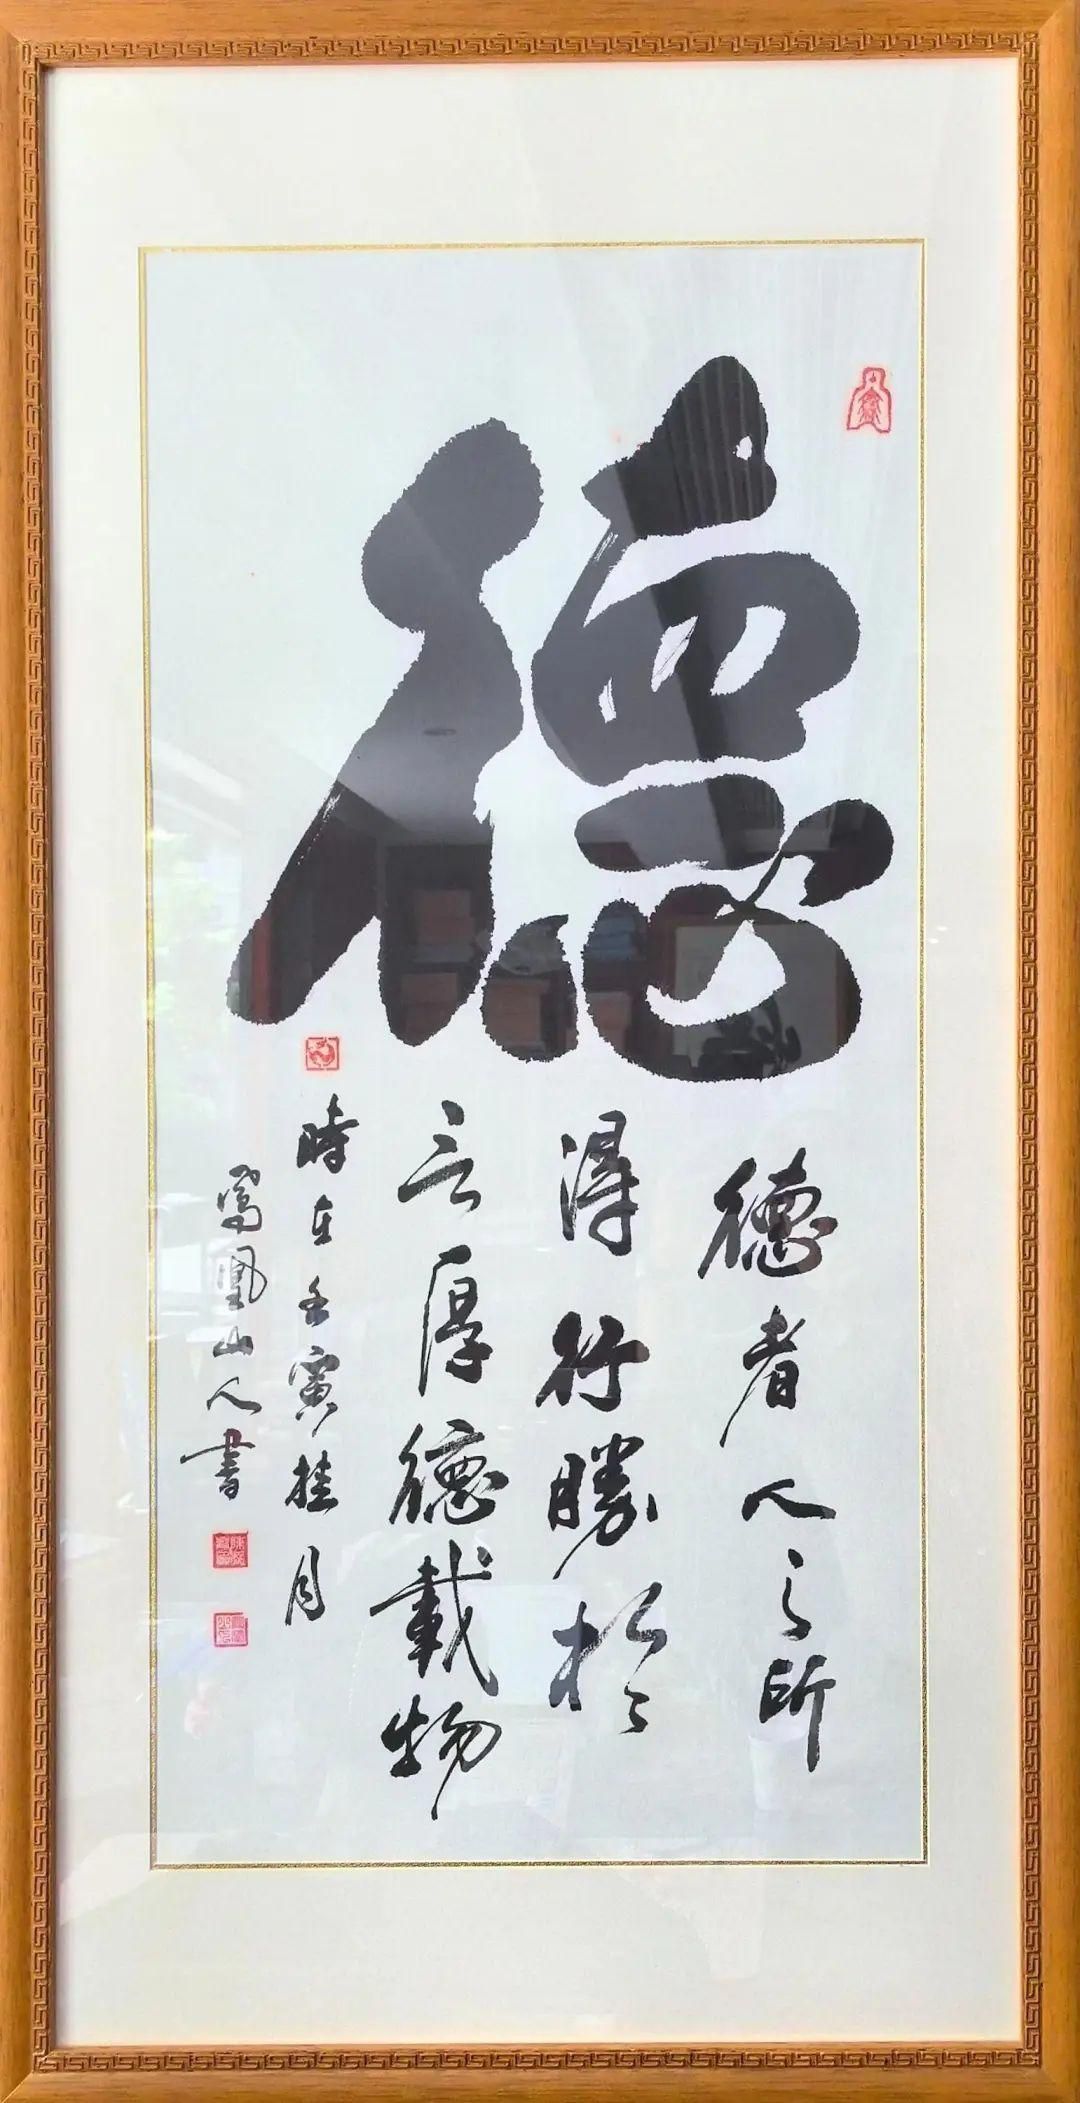 德
德者人之所
得行勝於
言厚德載物
時在壬寅桂月
鳳凰山人書